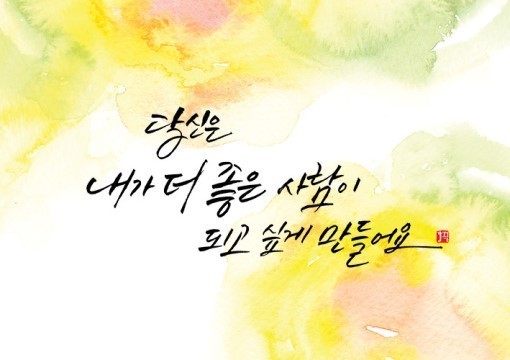 당신은
내가 더 좋은 사람이
되고 싶게 만들어요